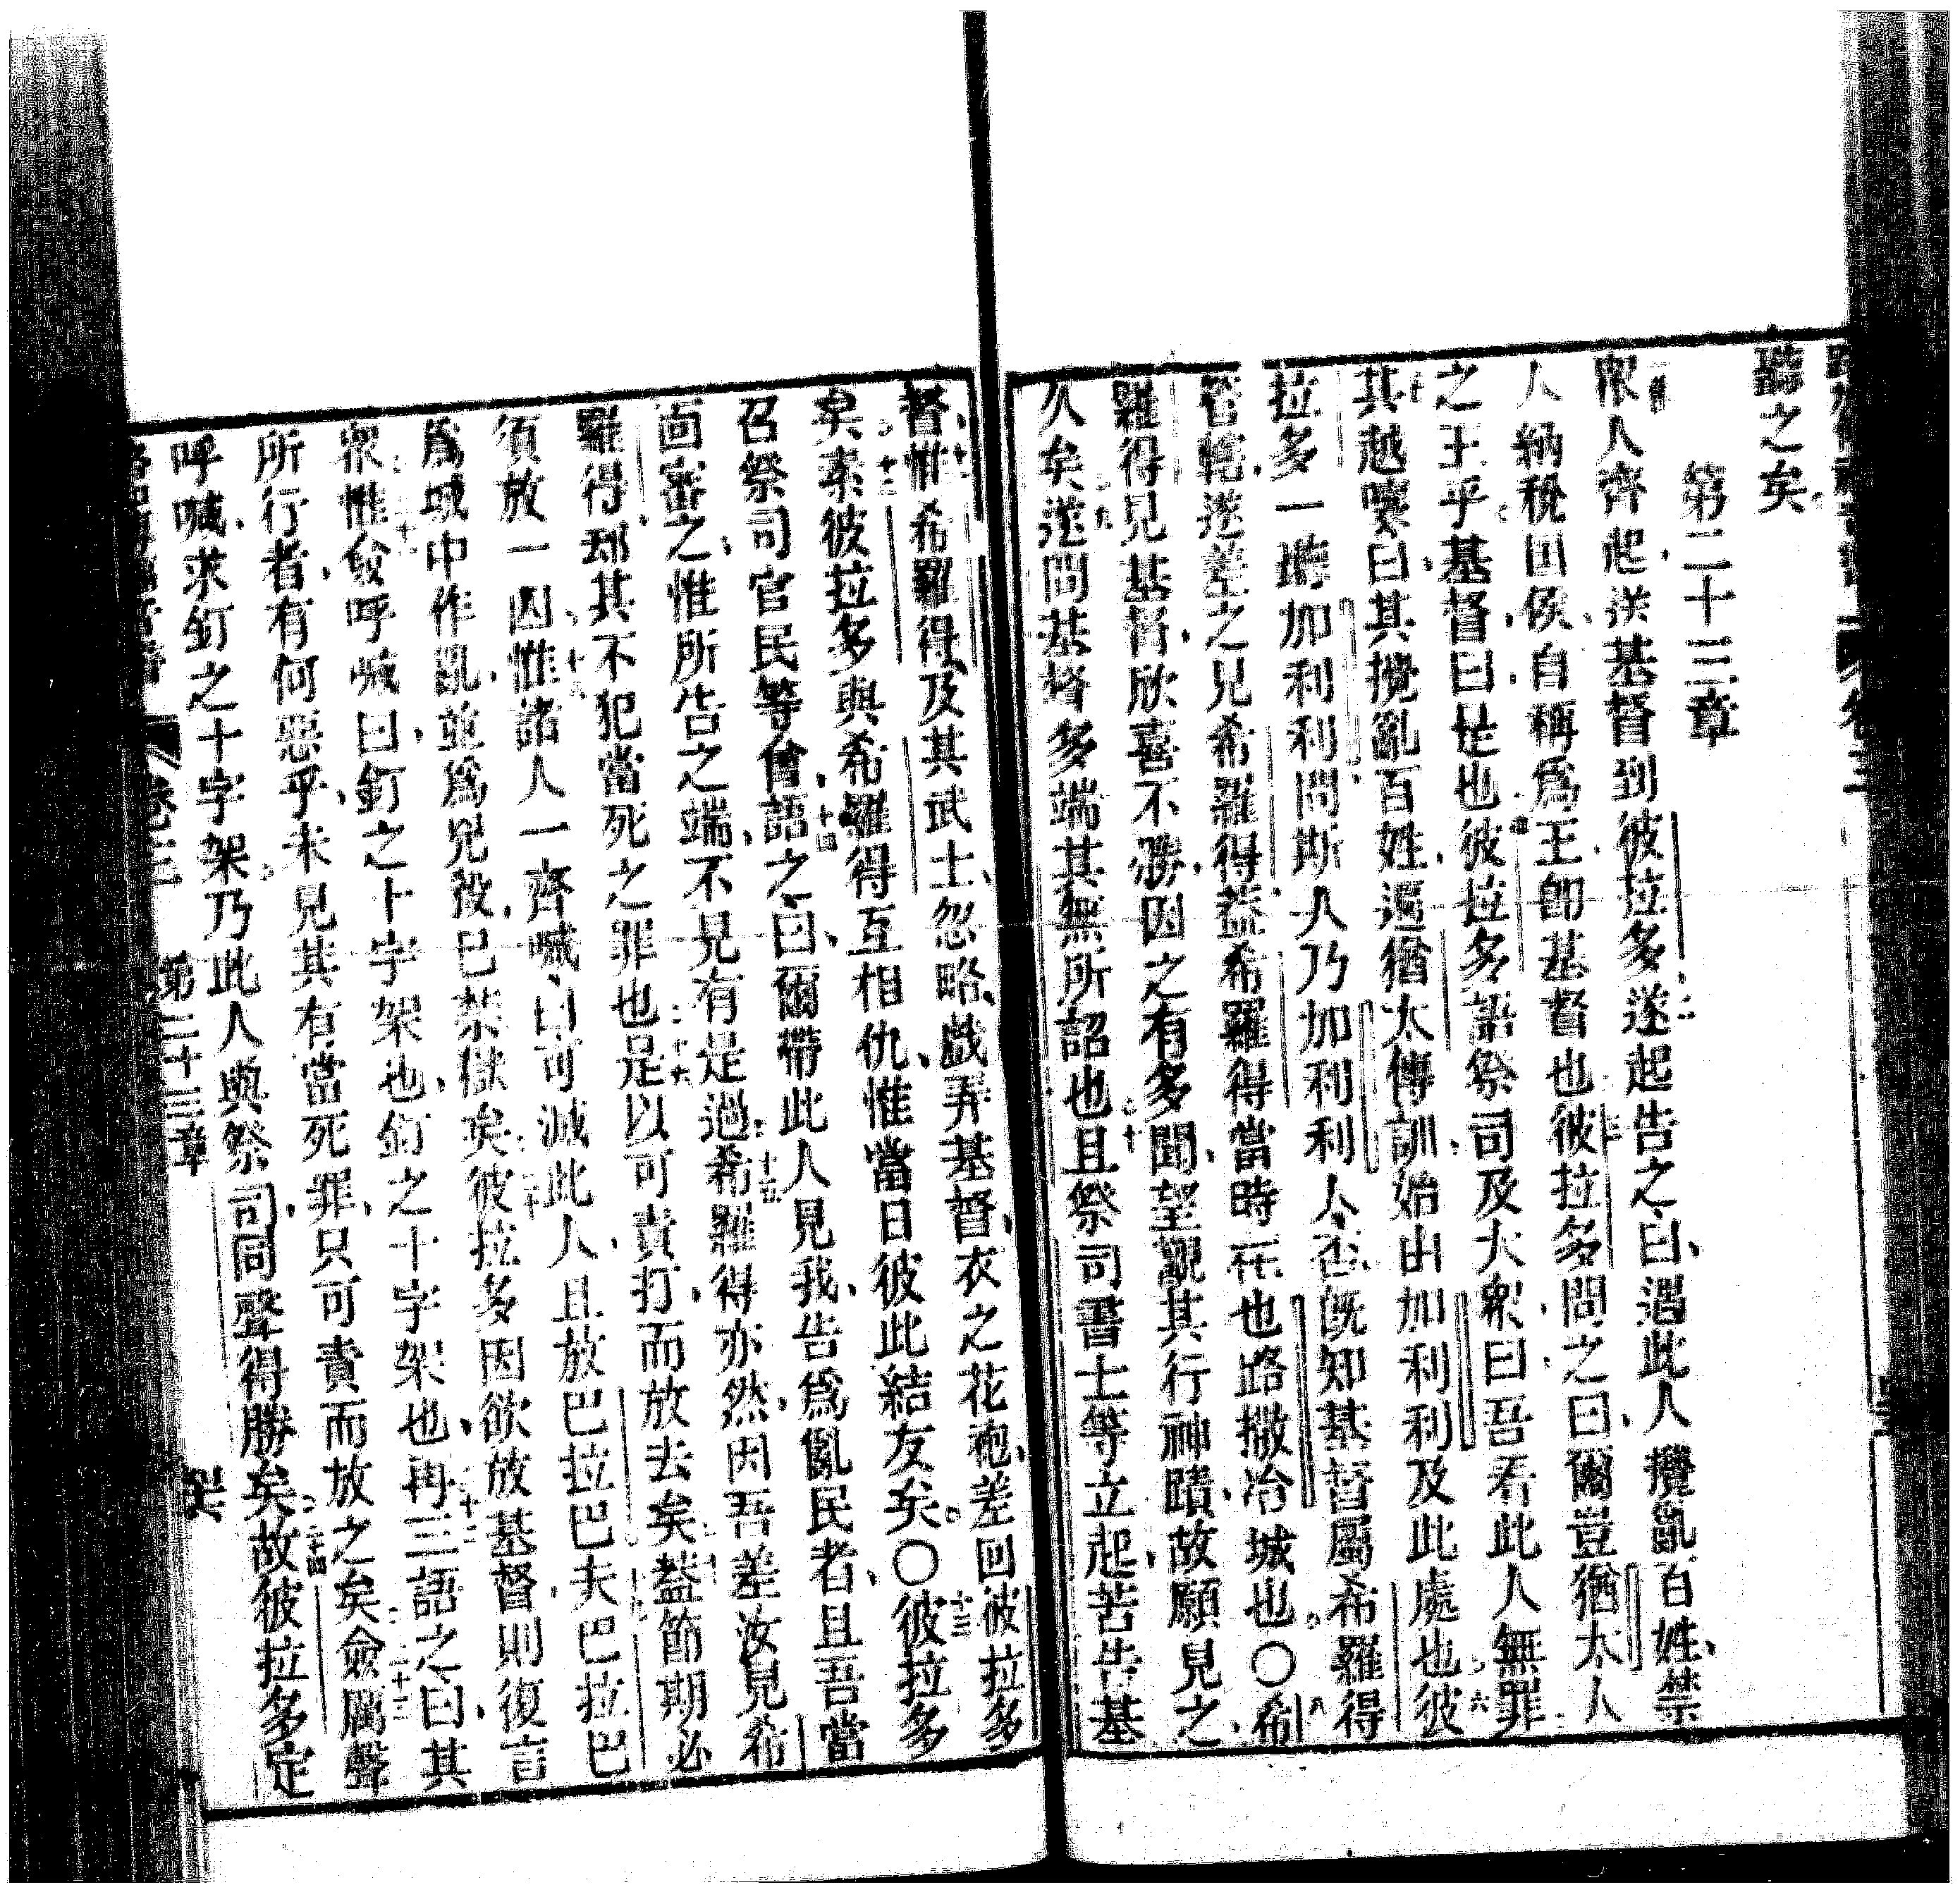 聽之矣
第二十三章
衆人齊起送基督到彼拉多遂起告之曰遇此人攪亂百姓禁
人納稅田侯自稱爲王卽基督也彼拉多問之曰爾豈猶太人
之王乎基督曰是也彼拉多語祭司及大衆曰吾看此人無罪
其越嚷曰其攪亂百姓遍猶太傳訓始出加利利及此處也彼
拉多一聽加利利問斯人乃加利利人否旣知基督屬希羅得
管轄遂差之見希羅得蓋希羅得當時在也路撒冶城也〇希
羅得見基督欣喜不勝因之有多聞望觀其行神蹟故願見之
久矣遂問基督多端其無所詔也且祭司書士等立起苦告基
督惟希羅得及其武士忽略戲弄基督衣之花袍差回彼拉多
矣素彼拉多與希羅得互相仇惟當日彼此結友矣〇彼拉多
召祭司官民等會語之曰爾帶此人見我告爲亂民者且吾當
面審之惟所告之端不見有是過希羅得亦然因吾差汝見希
羅得那其不犯當死之罪也是以可責打而放去矣蓋節期必
須放一囚惟諸人一齊喊曰可滅此人且放巴拉巴夫巴拉巴
爲城中作亂並爲兇殺已禁獄矣彼拉多因欲放基督則復言
衆惟僉呼喊曰釘之十字架也釘之十字架也再三語之曰其
所行者有何惡乎未見其有當死罪只可責而放之矣僉厲聲
呼喊求釘之十字架乃此人與祭司同聲得勝矣故彼拉多定
卷三 第二十三章